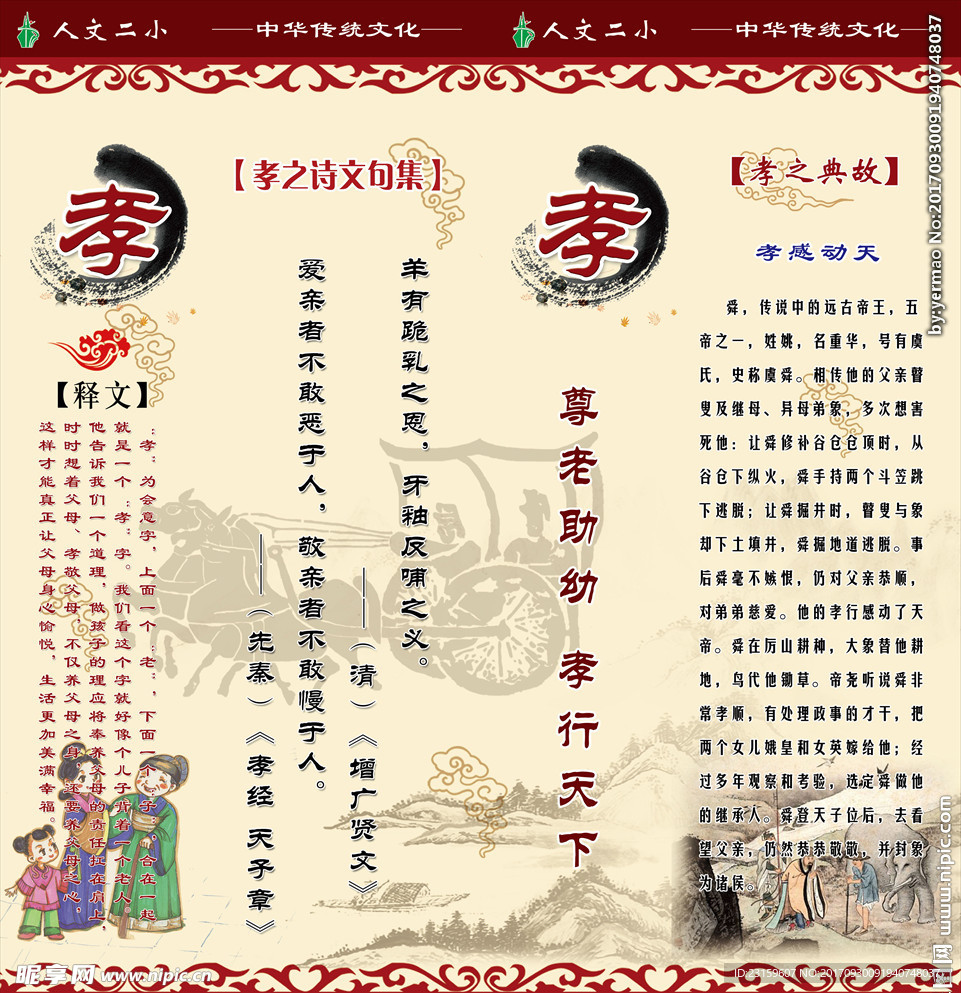 人文二小
中华传统文化
人文二小
中华传统文化
孝
【孝之诗文句集】
羊有跪乳之恩，牙釉反哺之义。
——（清）《增广贤文》
爱亲者不敢恶于人，敬亲者不敢慢于人。
——（先秦）《孝经 天子章》
【释文】
“孝”为会意字，上面一个“老”，下面一个“子”合在一起
就是一个“孝”字。我们看这个字就好像个儿子背着一个老人，
他告诉我们一个道理，做孩子的理应将奉养父母的责任扛在肩上，
时时想着父母、孝敬父母，不仅养父母之身，还要养父母之心，
这样才能真正让父母身心愉悦，生活更加美满幸福。
尊老助幼 孝行天下
孝
【孝之典故】
孝感动天
舜，传说中的远古帝王，五
帝之一，姓姚，名重华，号有虞
氏，史称虞舜。相传他的父亲瞽
叟及继母、异母弟象，多次想害
死他：让舜修补谷仓仓顶时，从
谷仓下纵火，舜手持两个斗笠跳
下逃脱；让舜掘井时，瞽叟与象
却下土填井，舜掘地道逃脱。事
后舜毫不嫉恨，仍对父亲恭顺，
对弟弟慈爱。他的孝行感动了天
帝。舜在厉山耕种，大象替他耕
地，鸟代他锄草。帝尧听说舜非
常孝顺，有处理政事的才干，把
两个女儿娥皇和女英嫁给他；经
过多年观察和考验，选定舜做他
的继承人。舜登天子位后，去看
望父亲，仍然恭恭敬敬，并封象
为诸侯。
by:yermao No:20170930091940748037
昵享网 www.nipic.cn
www.nipic.com
ID:23159607 NO:20170930091940748037